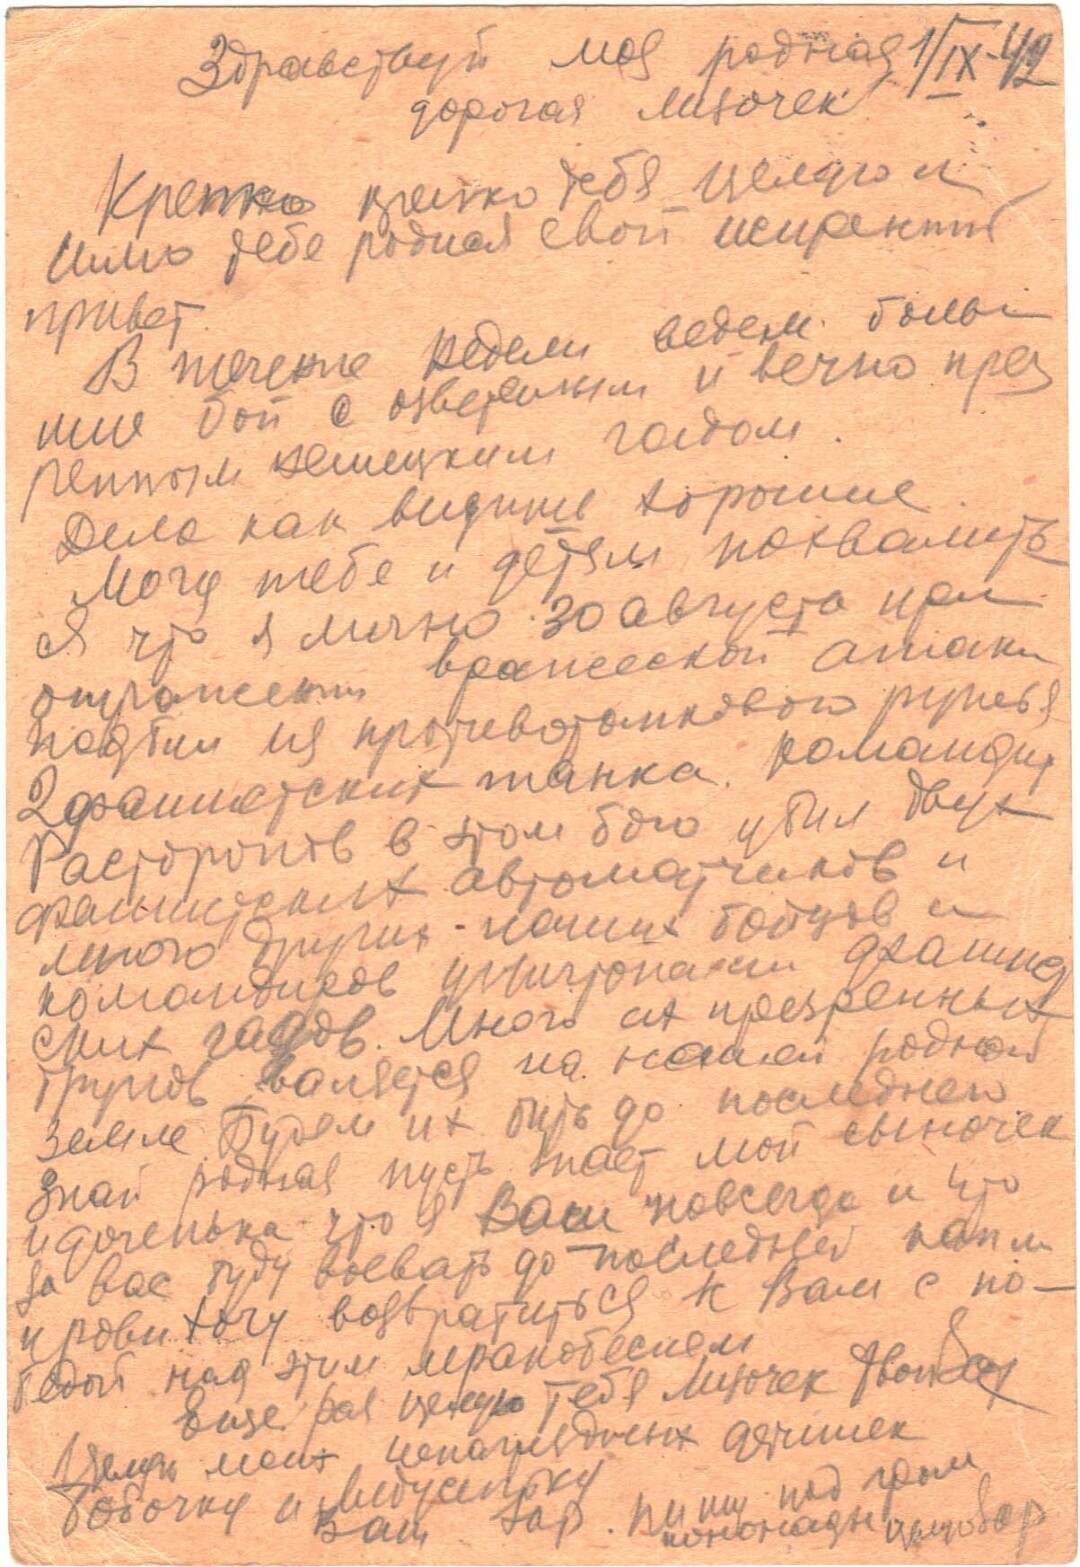 Здравствуй моя родная 1/IX-42
дорогая Лизочек
Крепко крепко тебя целую и
шлю тебе родная свой искренний
привет.
В течение недели ведем боль
шие бои с озверелым и вечно през
ренным немецким гадом.
Дела как видишь хорошие.
Могу тебе и детям похвалить
ся что я лично 30 августа при
отражении вражеской атаки
подбил из противотанкового ружья
2 фашистских танка. Командир
Расторопов в этом бою убил двух
фашистских автоматчиков и
много других наших бойцов и
командиров уничтожали фашист
ских гадов. Много их презренных
трупов валяется на нашей родной
земле Будем их бить до последнего
Знай родная пусть знает мой сыночек
и доченька что я Ваш навсегда и что
за вас буду воевать до последней капли
крови хочу возвратиться к Вам с по-
бедой над этим мракобесием
Еще раз целую Тебя Лизочек Твой
Целую моих ненаглядных детишек
Ваш Бор. Пишу под гром
кононады целую Бор